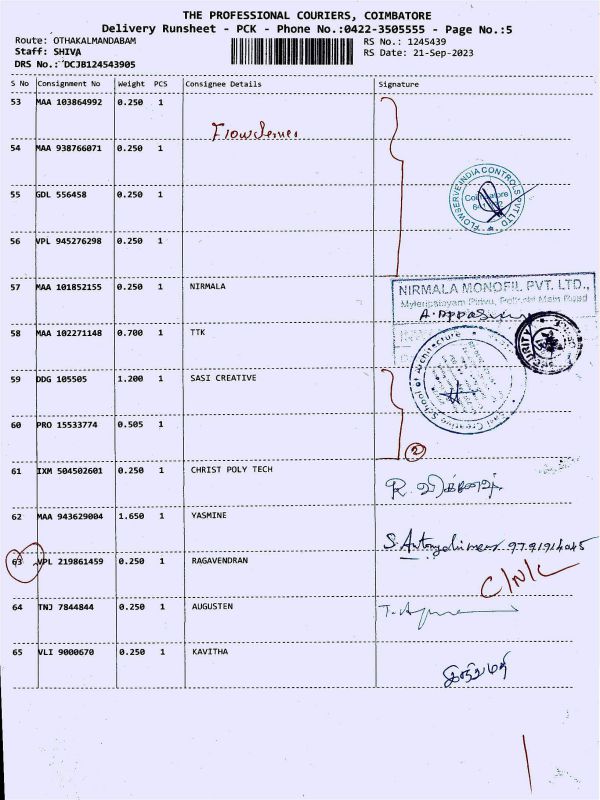 THE PROFESSIONAL COURIERS, COIMBATORE
Delivery Runsheet - PCK - Phone No.:0422-3505555 - Page No.:5
Route: OTHAKALMANDABAM RS No.: 1245439
Staff: SHIVA RS Date: 21-Sep-2023
DRS No.: DCJB124543905
S No Consignment No Weight PCS Consignee Details Signature
53 MAA 103864992 0.250 1
Flowserve
54 MAA 938766071 0.250 1
FLOWSERVE INDIA CONTROLS PVT LTD
55 GDL 556458 0.250 1
56 VPL 945276298 0.250 1
57 MAA 101852155 0.250 1 NIRMALA
NIRMALA MONOFIL PVT. LTD.,
58 MAA 102271148 0.700 1 TTK
SECURITY
59 DDG 105505 1.200 1 SASI CREATIVE
Sasi Creative School of Architecture
60 PRO 15533774 0.505 1
2
61 IXM 504502601 0.250 1 CHRIST POLY TECH
62 MAA 943629004 1.650 1 YASMINE
63 VPL 219861459 0.250 1 RAGAVENDRAN
C/N/C
64 TNJ 7844844 0.250 1 AUGUSTEN
65 VLI 9000670 0.250 1 KAVITHA